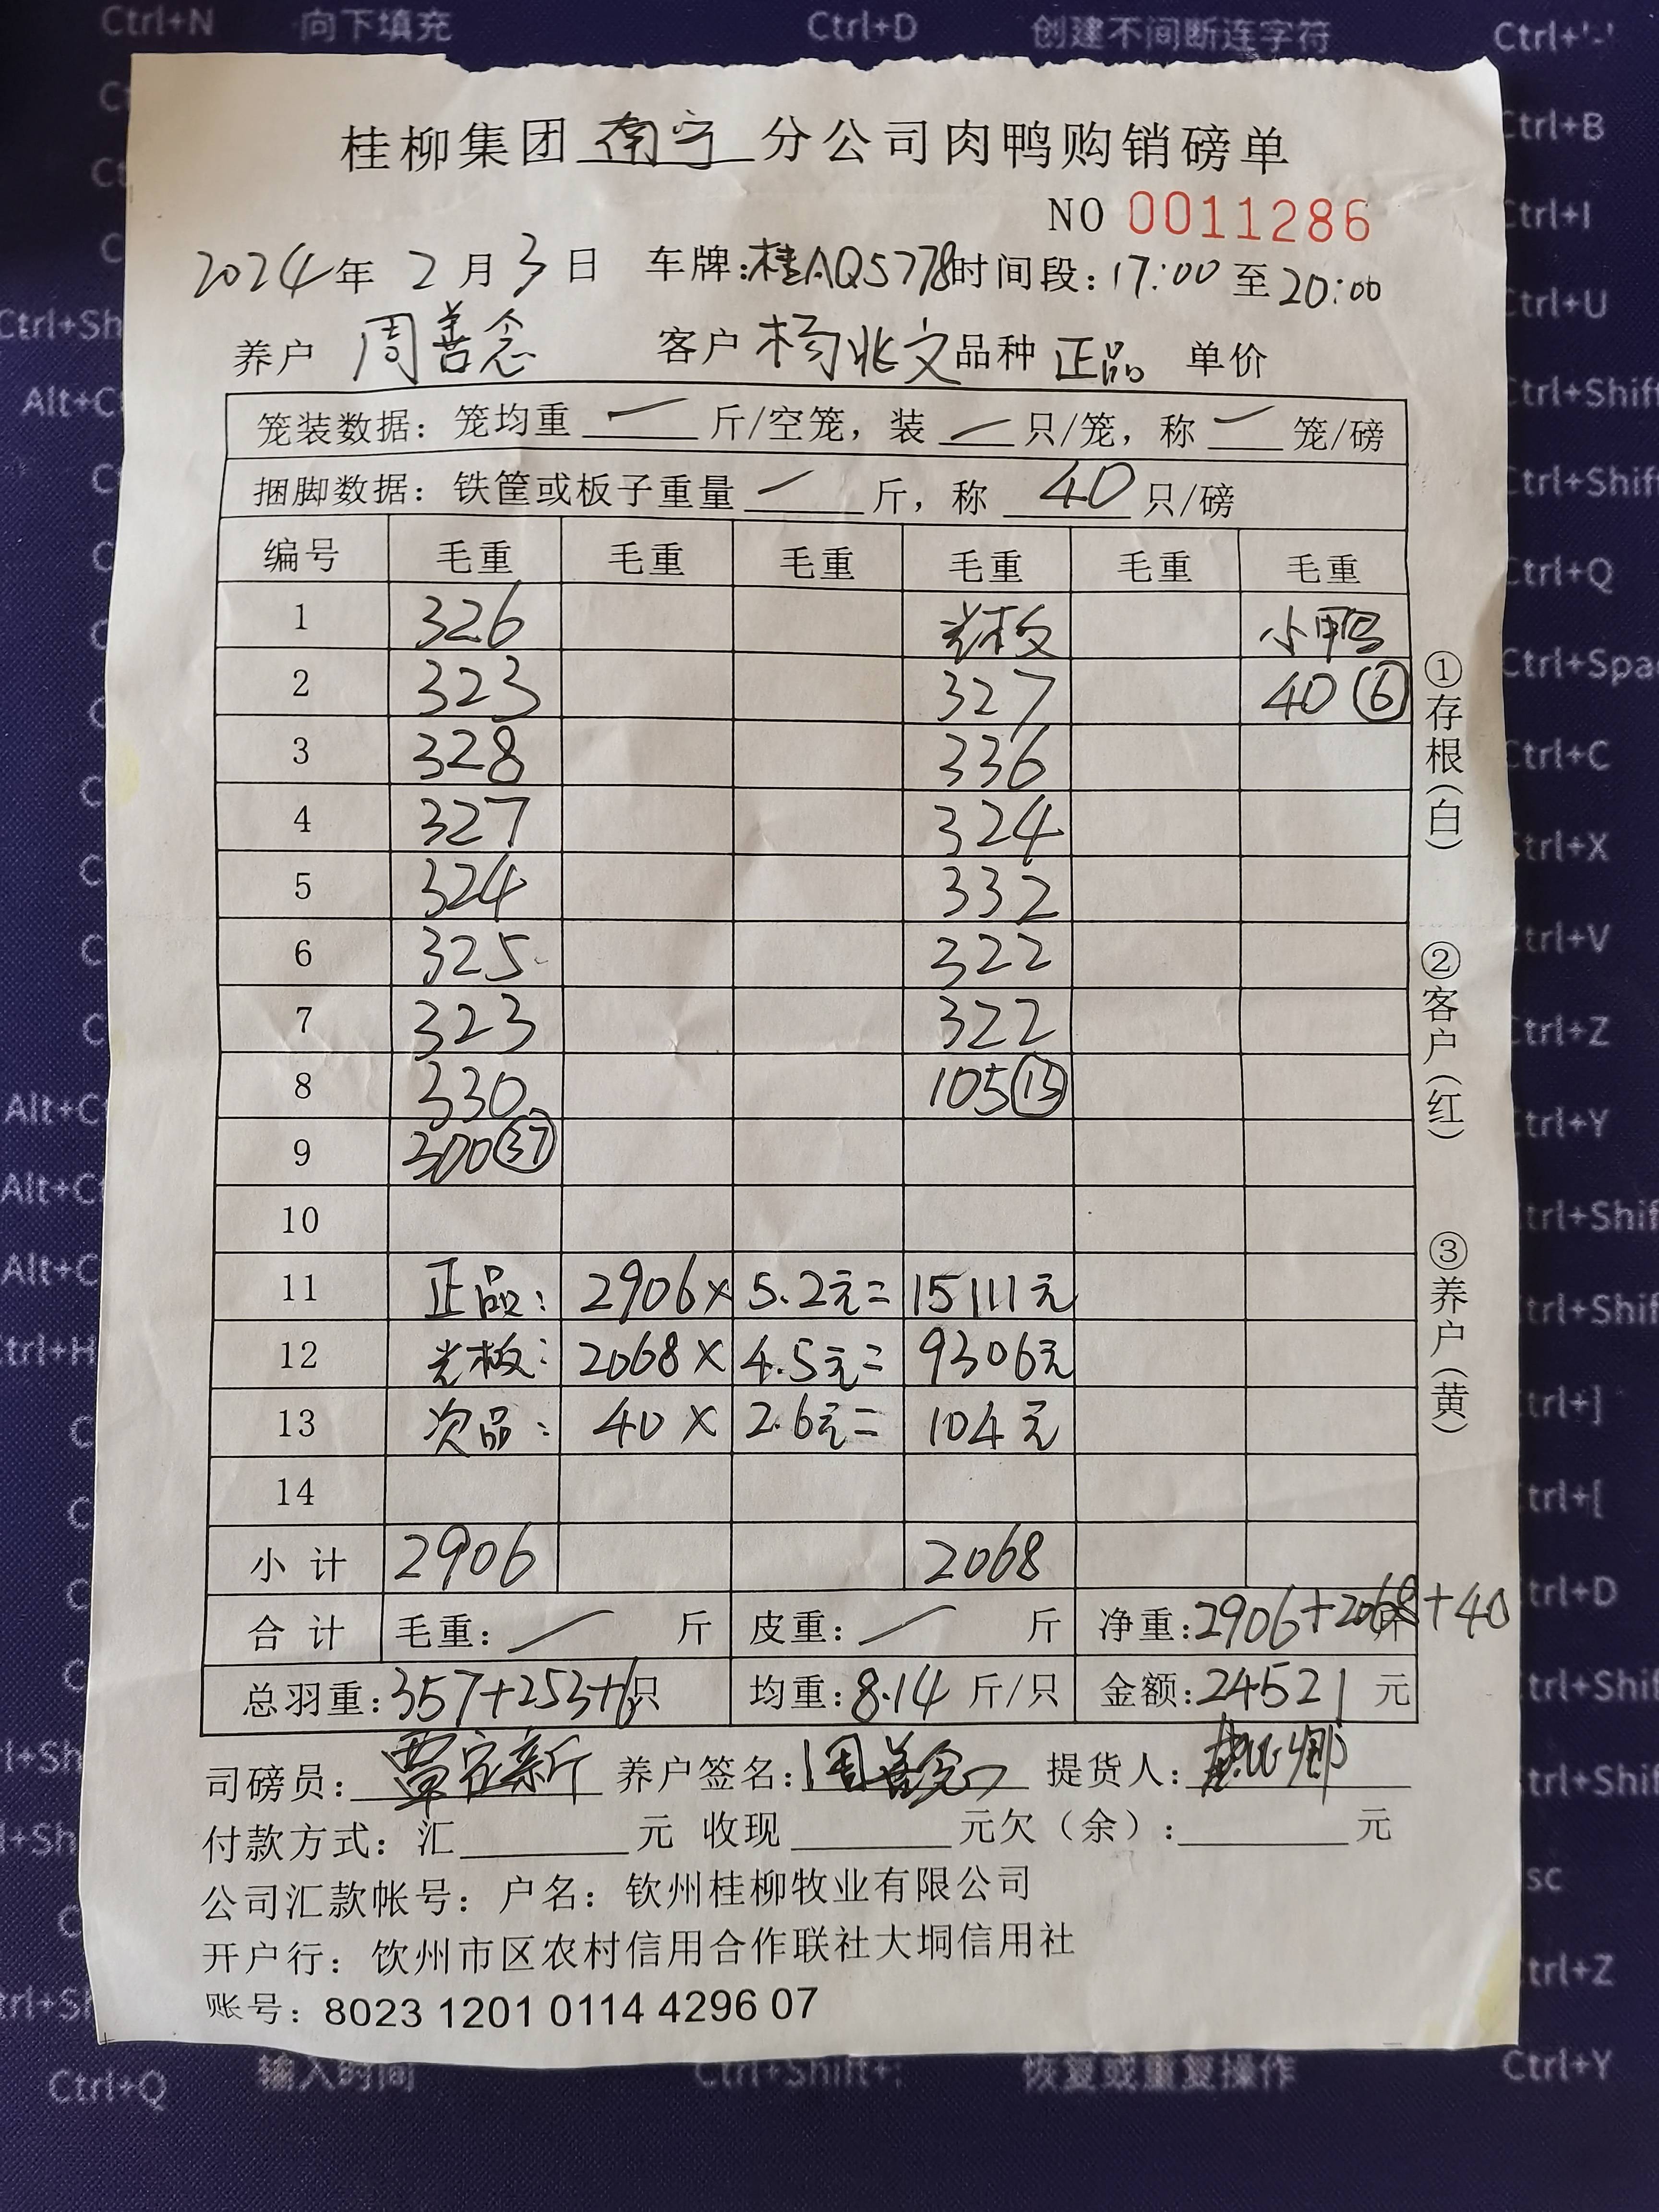 Ctrl+N 向下填充 Ctrl+D 创建不间断连字符 Ctrl+'-'
桂柳集团 南宁 分公司肉鸭购销磅单
Ctrl+B
NO 0011286
Ctrl+I
2024年 2 月 3 日 车牌:桂AQ5778时间段:17:00至20:00
Ctrl+U
养户 周善念 客户 杨兆文 品种 正品 单价
笼装数据: 笼均重 一 斤/空笼, 装 一 只/笼, 称 一 笼/磅
捆脚数据: 铁筐或板子重量 一 斤, 称 40 只/磅
编号 毛重 毛重 毛重 毛重 毛重 毛重
1 326 光板 小鸭
2 323 327 40 ⑥
3 328 336
4 327 324
5 324 332
6 325 322
7 323 322
8 330 105 ⑬
9 300 ㊲
10
11 正品: 2906× 5.2元= 15111元
12 光板: 2068× 4.5元= 9306元
13 次品: 40× 2.6元= 104元
14
小计 2906 2068
合计 毛重: 一 斤 皮重: 一 斤 净重:2906+2068+40斤
总羽重:357+253+6只 均重:8.14 斤/只 金额:24521 元
①存根(白)
②客户(红)
③养户(黄)
司磅员: 覃宏新 养户签名: 周善念 提货人:
付款方式: 汇 元 收现 元欠(余): 元
公司汇款帐号: 户名: 钦州桂柳牧业有限公司
开户行: 钦州市区农村信用合作联社大垌信用社
账号: 8023 1201 0114 4296 07
Ctrl+Q 输入时间 Ctrl+Shift+; 恢复或重复操作 Ctrl+Y